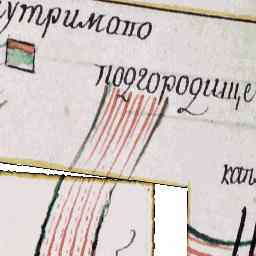 утримопо
подгородище
кал